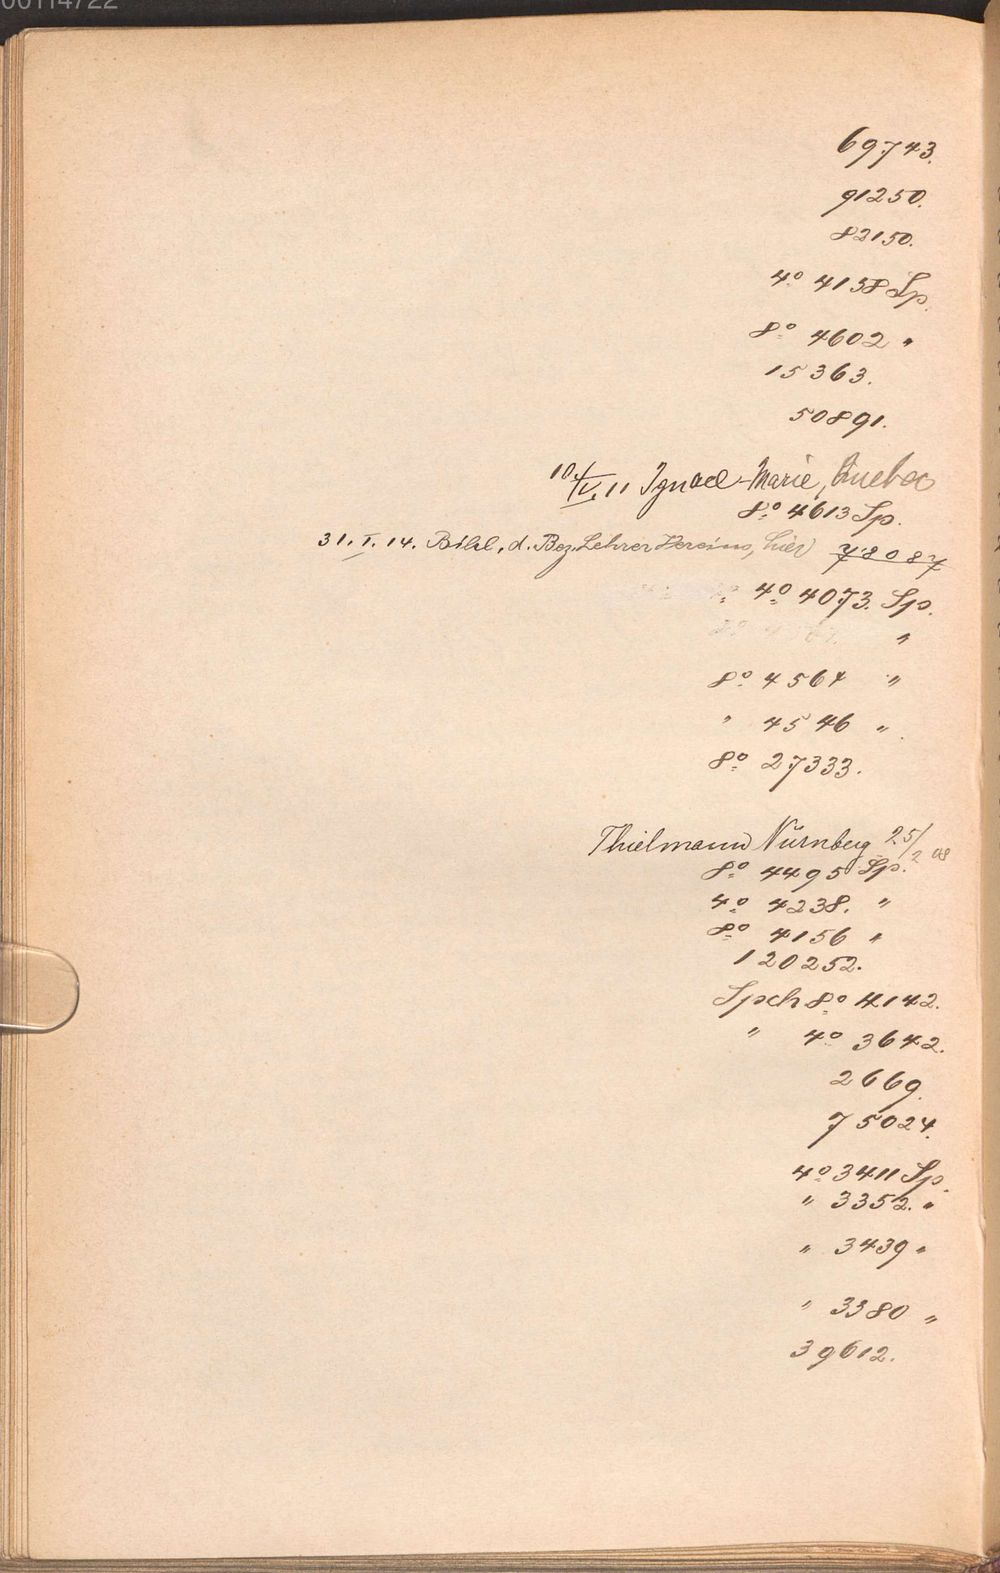 00114722
69743.
91250.
82150.
4º 4138 Sp.
8º 4602 "
15363.
50891.
10/IV. 11 Ignace-Marie, Quebec
8º 4613 Sp.
31. I. 14. Bibl. d. Bez. Lehrer Vereins, hier 78087
4º 4073. Sp.
"
8º 4564 "
" 4546 "
8º 27333.
Thielmann Nürnberg 25/2 08
8º 4495 Sp.
4º 4238. "
8º 4156 "
120252.
Spch 8º 4142.
" 4º 3642.
2669.
75024.
4º 3411 Sp.
" 3352. "
" 3439 "
" 3380 "
39612.